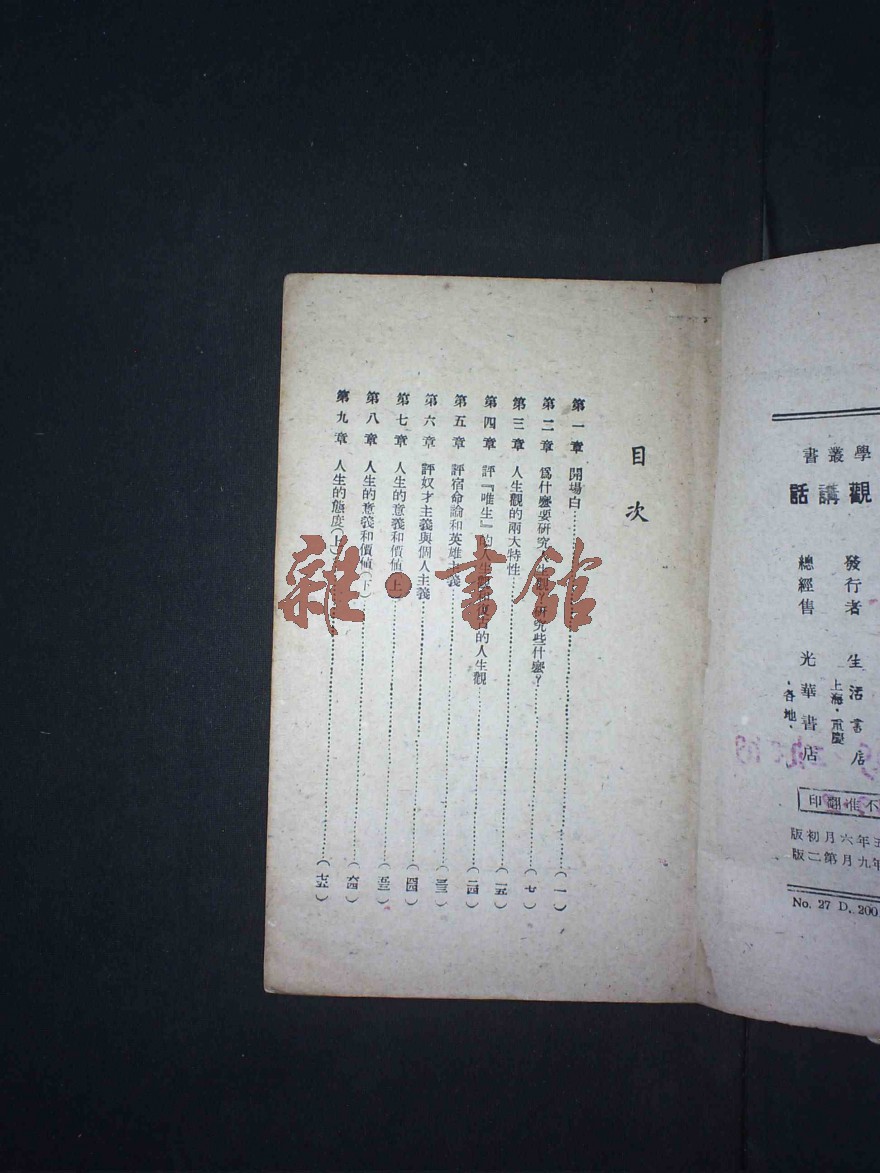 學叢書
觀講話
發行者 生活書店
上海·重慶
總經售 光華書店
·各地·
不准翻印
五年六月初版
年九月第二版
No. 27 D. 200
目次
第一章 開場白……(一)
第二章 爲什麼要研究人生觀 研究些什麼？……(七)
第三章 人生觀的兩大特性……(一五)
第四章 評『唯生』的人生觀和復古的人生觀……(二四)
第五章 評宿命論和英雄主義……(三三)
第六章 評奴才主義與個人主義……(四四)
第七章 人生的意義和價値(上)……(五三)
第八章 人生的意義和價値(下)……(六四)
第九章 人生的態度(上)……(七五)
雜·書館